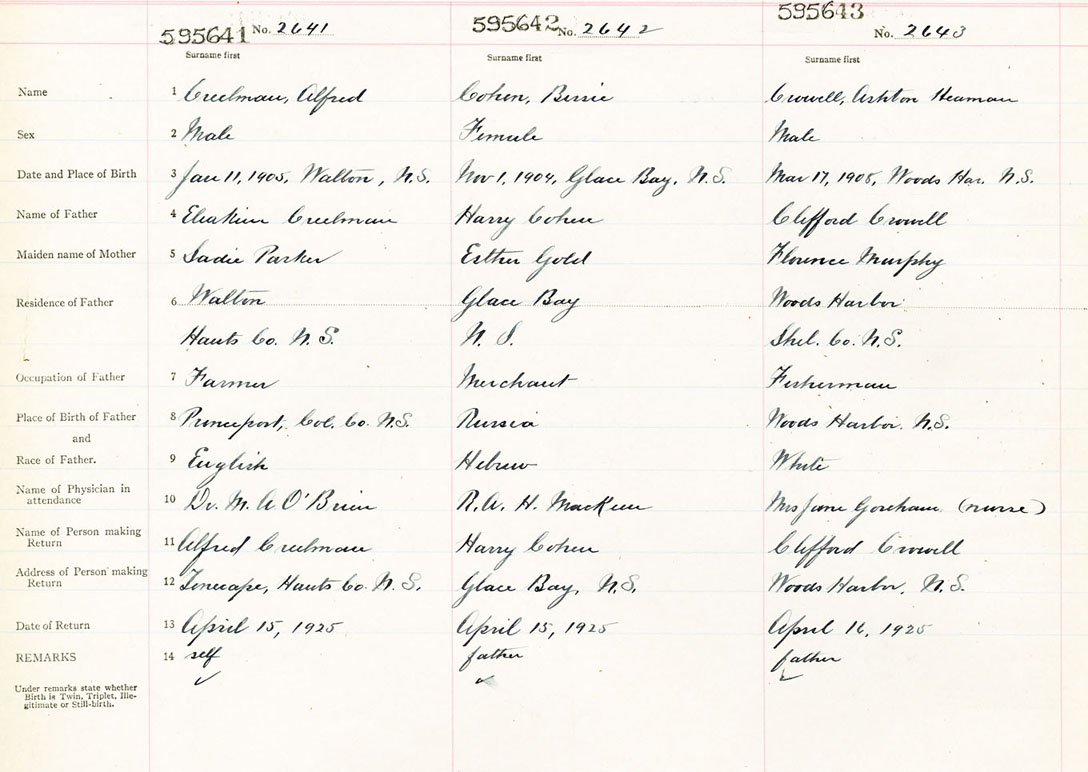 595641 No. 2641 595642 No. 2642 595643 No. 2643
Surname first Surname first Surname first
Name 1 Creelman, Alfred Cohen, Bessie Crowell, Ashton Heaman
Sex 2 Male Female Male
Date and Place of Birth 3 Jan 11, 1905, Walton, N.S. Nov 1, 1904, Glace Bay, N.S. Mar 17, 1908, Woods Har. N.S.
Name of Father 4 Eliakim Creelman Harry Cohen Clifford Crowell
Maiden name of Mother 5 Sadie Parker Esther Gold Florence Murphy
Residence of Father 6 Walton Glace Bay Woods Harbor
Hants Co. N.S. N.S. Shel. Co. N.S.
Occupation of Father 7 Farmer Merchant Fisherman
Place of Birth of Father 8 Princeport, Col. Co. N.S. Russia Woods Harbor. N.S.
and
Race of Father. 9 English Hebrew White
Name of Physician in
attendance 10 Dr. M. A O'Brien R.A. H. MacKeen Mrs Jane Goreham (nurse)
Name of Person making
Return 11 Alfred Creelman Harry Cohen Clifford Crowell
Address of Person making
Return 12 Tenecape, Hants Co. N.S. Glace Bay, N.S. Woods Harbor, N.S.
Date of Return 13 April 15, 1925 April 15, 1925 April 16, 1925
REMARKS 14 self father father
Under remarks state whether
Birth is Twin, Triplet, Ille-
gitimate or Still-birth.